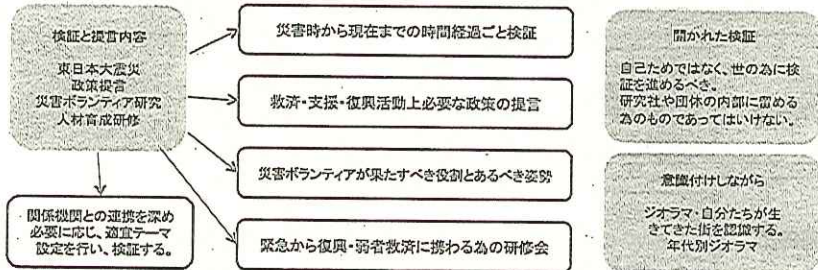 検証と提言内容
東日本大震災
政策提言
災害ボランティア研究
人材育成研修
関係機関との連携を深め
必要に応じ、適宜テーマ
設定を行い、検証する。
災害時から現在までの時間経過ごと検証
救済・支援・復興活動上必要な政策の提言
災害ボランティアが果たすべき役割とあるべき姿勢
緊急から復興・弱者救済に携わる為の研修会
開かれた検証
自己ためではなく、世の為に検
証を進めるべき。
研究社や団体の内部に留める
為のものであってはいけない。
意識付けしながら
ジオラマ・自分たちが生
きてきた街を認識する。
年代別ジオラマ